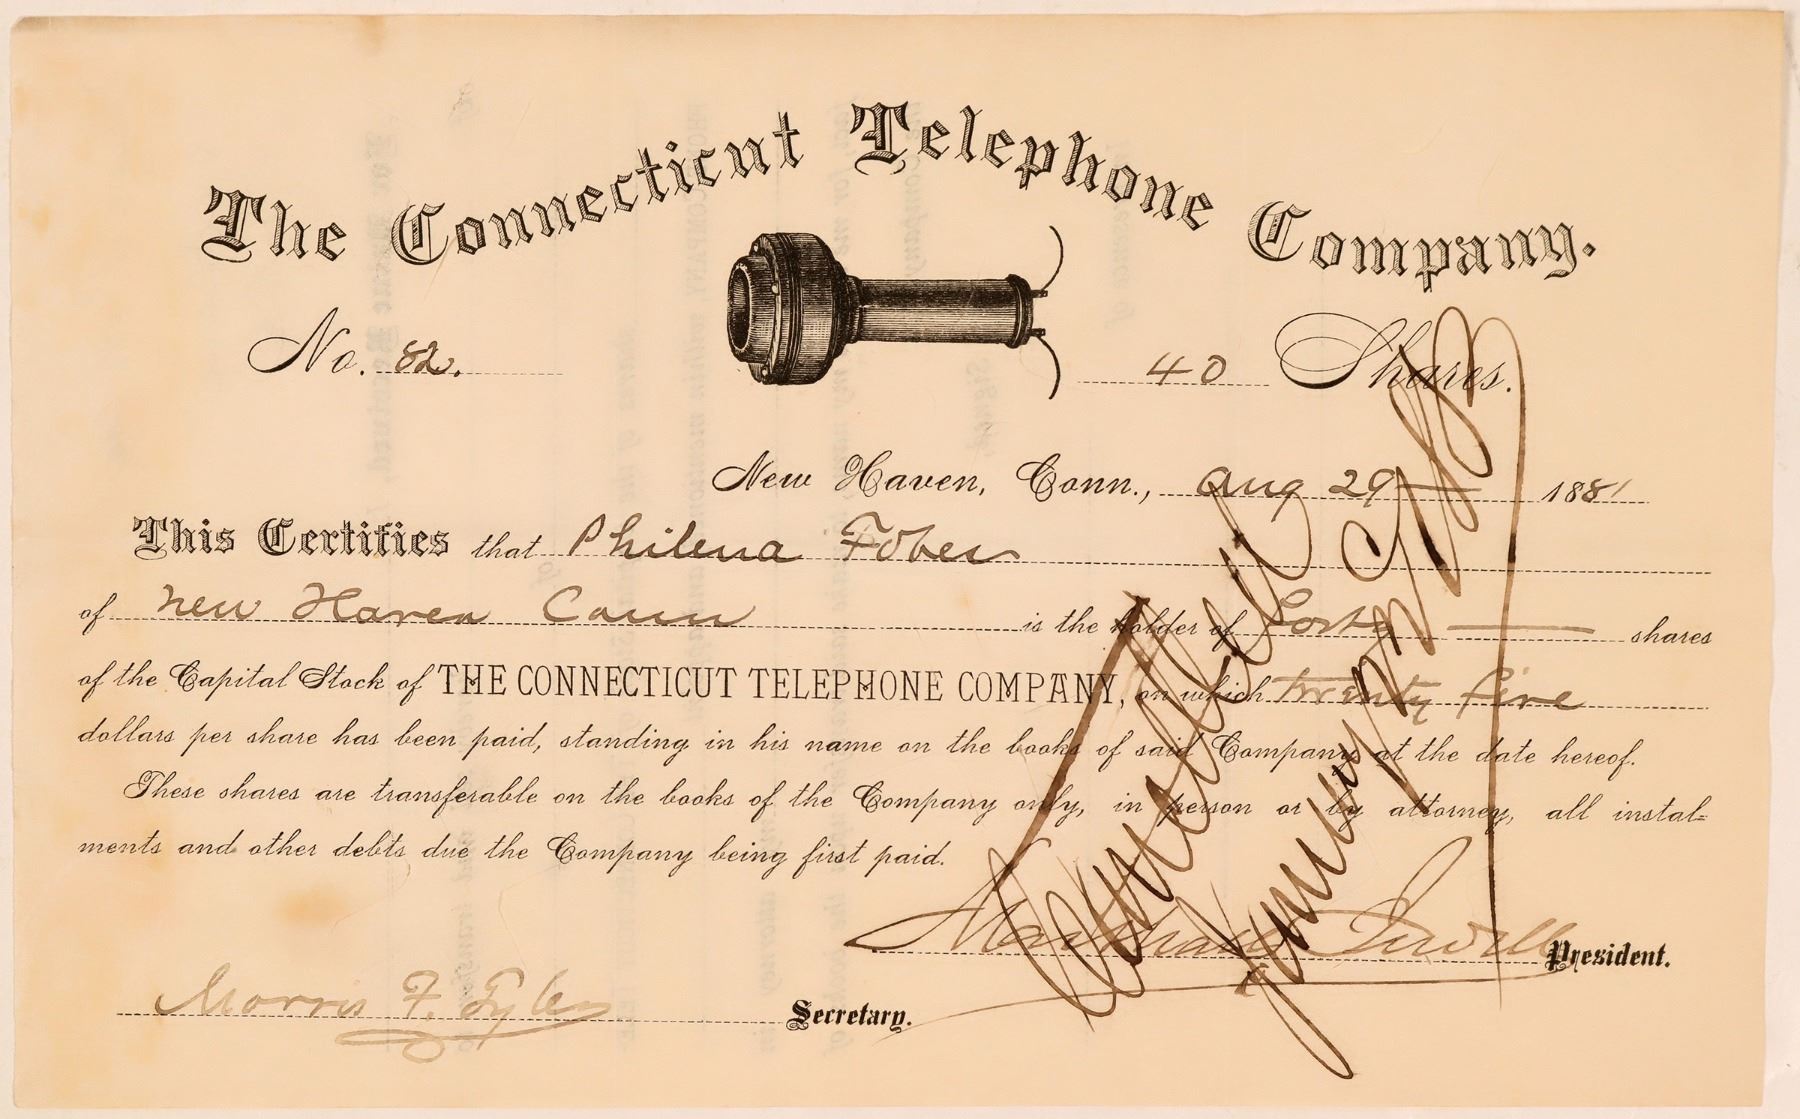 The Connecticut Telephone Company.
No. 82.
40 Shares.
New Haven, Conn., Aug 29 1881
This Certifies that Philena Fobes
of New Haven Conn is the holder of Forty shares
of the Capital Stock of THE CONNECTICUT TELEPHONE COMPANY, on which twenty five
dollars per share has been paid, standing in his name on the books of said Company at the date hereof.
These shares are transferable on the books of the Company only, in person or by attorney, all instal=
ments and other debts due the Company being first paid.
Marshall Jewell President.
Morris F. Tyler Secretary.
Cancelled
January